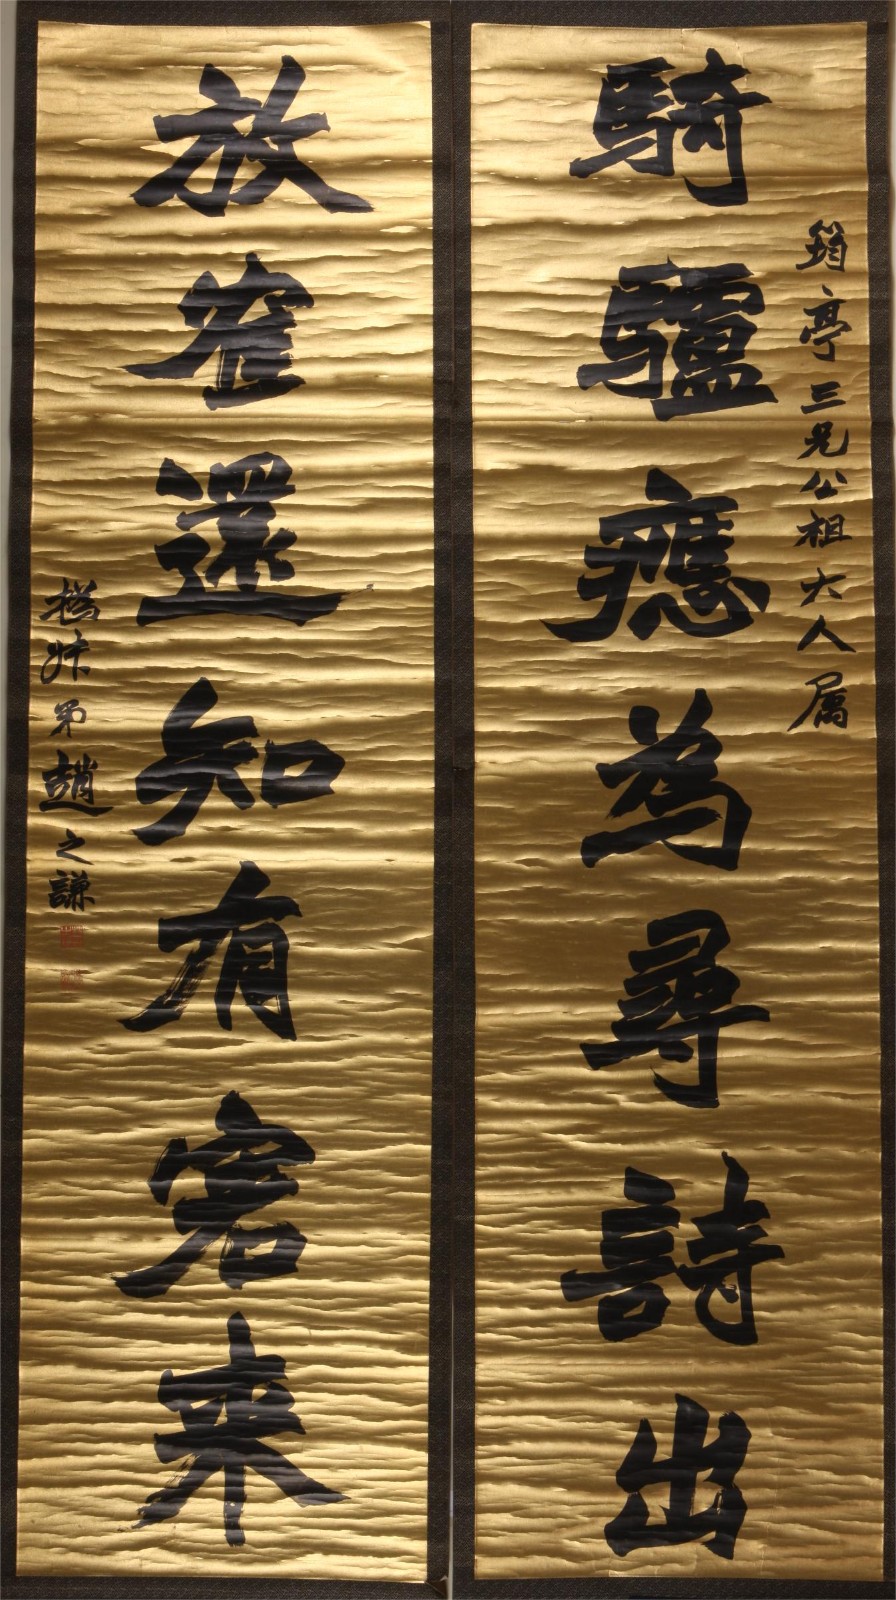 筠亭三兄公祖大人属
騎驢應為尋詩出
放隺還知有客来
撝叔弟趙之謙